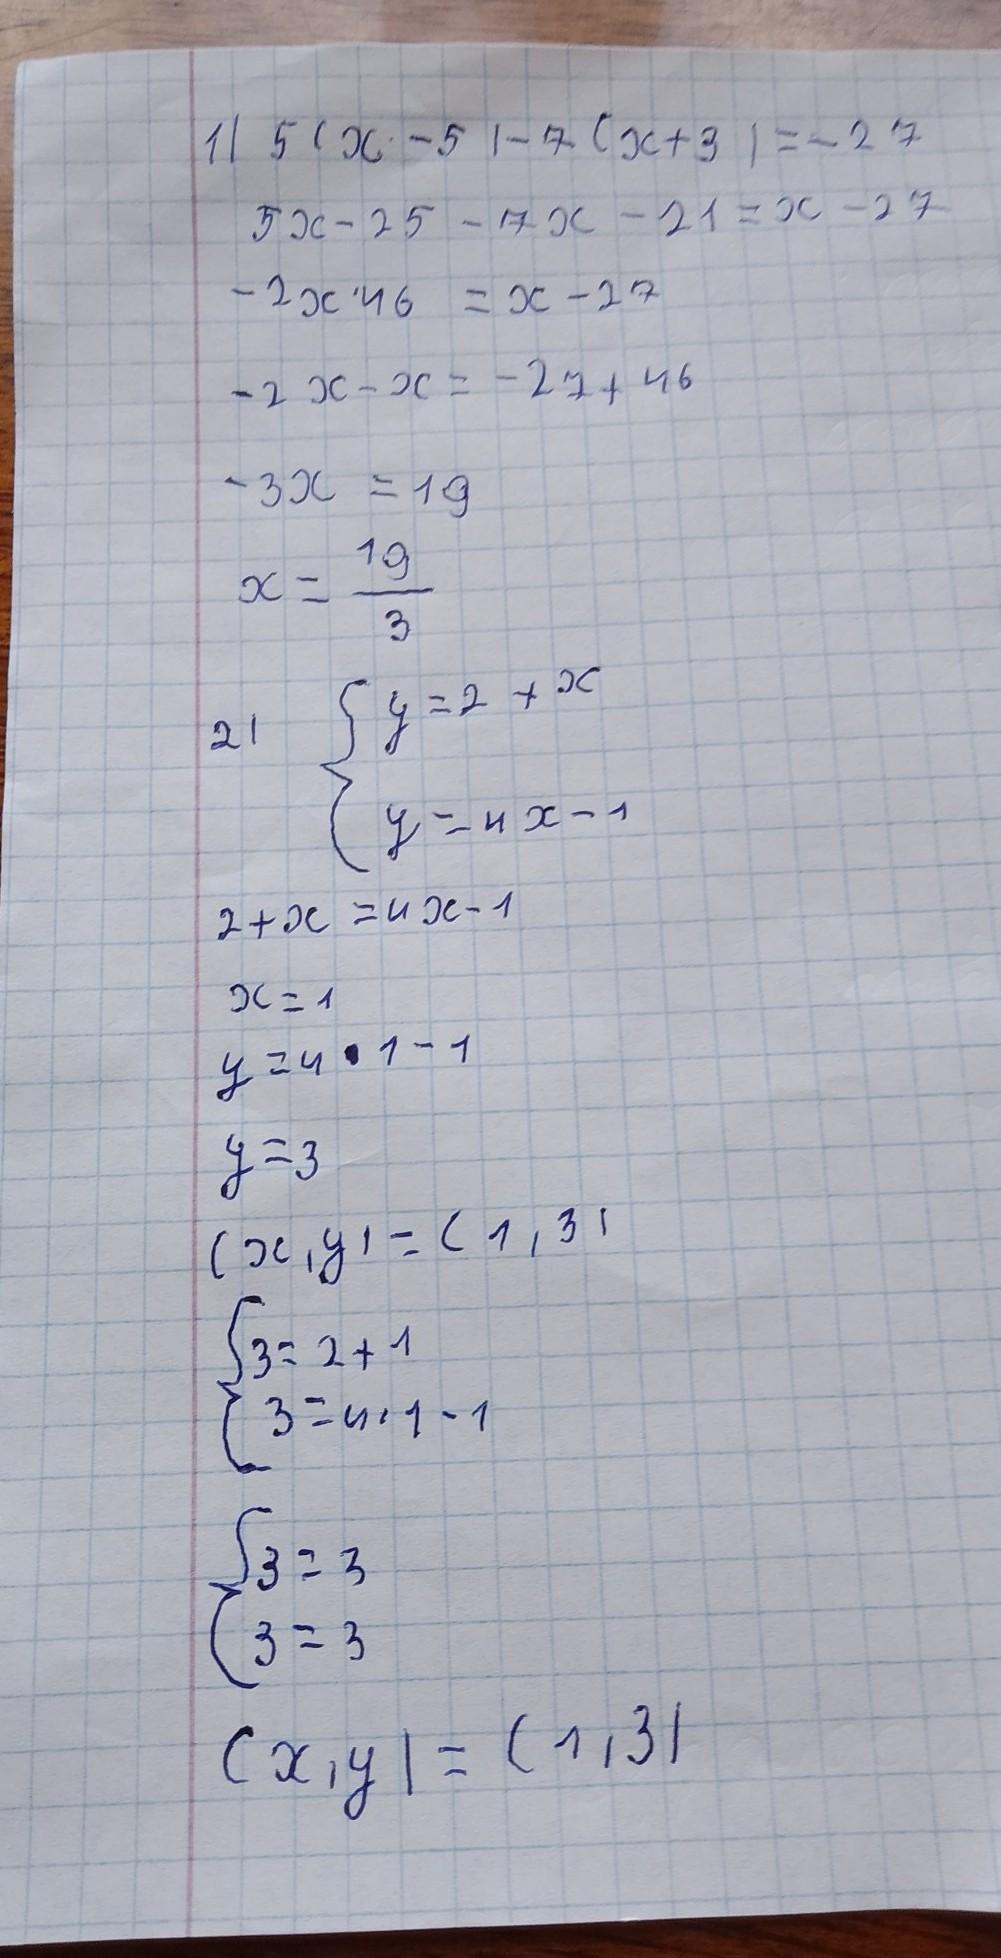 1) 5(x-5)-7(x+3)=-27
5x-25-7x-21=x-27
-2x·46 =x-27
-2x-x=-27+46
-3x=19
x=19/3
2) { y=2+x
y=4x-1
2+x=4x-1
x=1
y=4·1-1
y=3
(x,y)=(1,3)
{ 3=2+1
3=4·1-1
{ 3=3
3=3
(x,y)=(1,3)